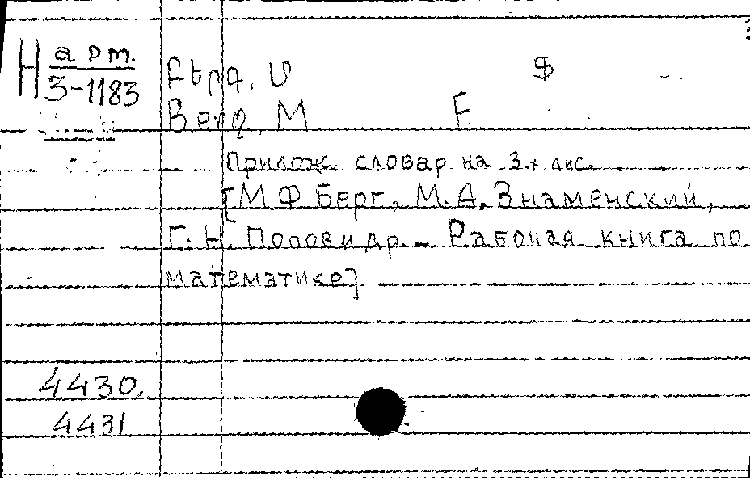 Н арт.
3-1183
Բերգ, Մ Ֆ
Берг, М F
Прилож. словар на 3.
[М Ф Берг, М.А. Знаменский,
Г. Н. Попов и др. – Рабочая книга по
математике]
4430,
4431